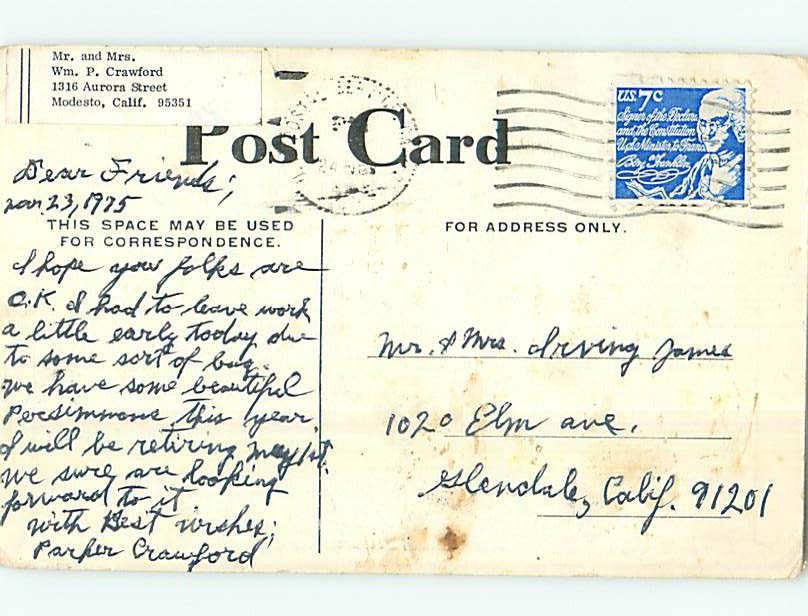 Mr. and Mrs.
Wm. P. Crawford
1316 Aurora Street
Modesto, Calif. 95351
Post Card
U.S. 7c
Signer of the Declara
and the Constitution
U.S. Minister to France
Ben Franklin
Dear Friends;
Nov. 23, 1975
THIS SPACE MAY BE USED
FOR CORRESPONDENCE.
I hope your folks are
O.K. I had to leave work
a little early today due
to some sort of bug.
We have some beautiful
Persimmons this year.
I will be retiring May 1st.
We sure are looking
forward to it
With Best wishes;
Parker Crawford
FOR ADDRESS ONLY.
Mr. & Mrs. Irving James
1020 Elm ave.
Glendale, Calif. 91201